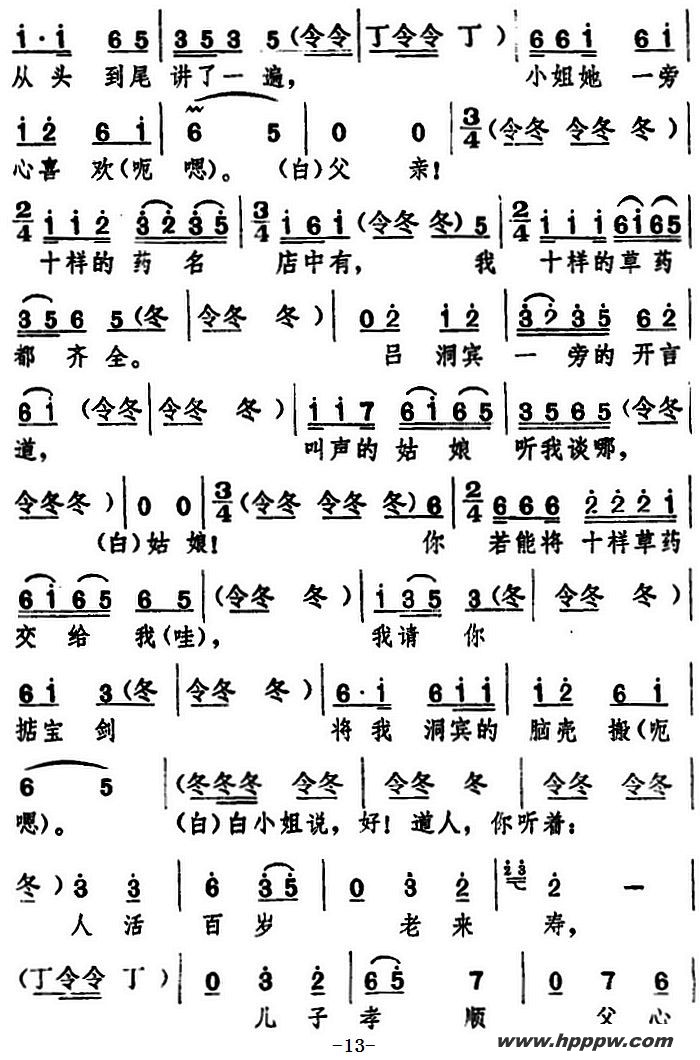 i·i 65 | 3 5 3 5 (令令 | 丁令令 丁) | 6 6 i 6 i |
从头 到尾 讲了一遍, 小姐她 一旁
i 2 6 i | 6 5 | 0 0 | 3/4 (令冬 令冬 冬) |
心喜 欢(呃 嗯)。 (白)父 亲!
2/4 i i 2 3 2 3 5 | 3/4 i 6 i (令冬 冬) 5 | 2/4 i i i 6 i 6 5 |
十样的 药 名 店中有, 我 十样的草药
3 5 6 5 (冬 | 令冬 冬) | 0 2 i 2 | 3 2 3 5 6 2 |
都 齐 全。 吕 洞宾 一 旁的 开言
6 i (令冬 | 令冬 冬) | i i 7 6 i 6 5 | 3 5 6 5 (令冬 |
道, 叫声的 姑 娘 听我谈哪,
令冬冬) | 0 0 | 3/4 (令冬 令冬 冬) 6 | 2/4 6 6 6 2 2 2 i |
(白)姑 娘! 你 若能将 十样草药
6 i 6 5 6 5 | (令冬 冬) | i 3 5 3 (冬 | 令冬 冬) |
交 给 我(哇), 我请 你
6 i 3 (冬 | 令冬 冬) | 6·i 6 i i | i 2 6 i |
掂宝 剑 将我 洞宾的 脑壳 搬(呃
6 5 | (冬冬冬 令冬 | 令冬 冬 | 令冬 令冬 |
嗯)。 (白)白小姐说,好!道人,你听着:
冬) 3 3 | 6 3 5 | 0 3 2 | 2 3 2 — |
人 活 百 岁 老 来 寿,
(丁令令 丁) | 0 3 2 | 6 5 7 | 0 7 6 |
儿 子 孝 顺 父 心
-13-
www.hpppw.com